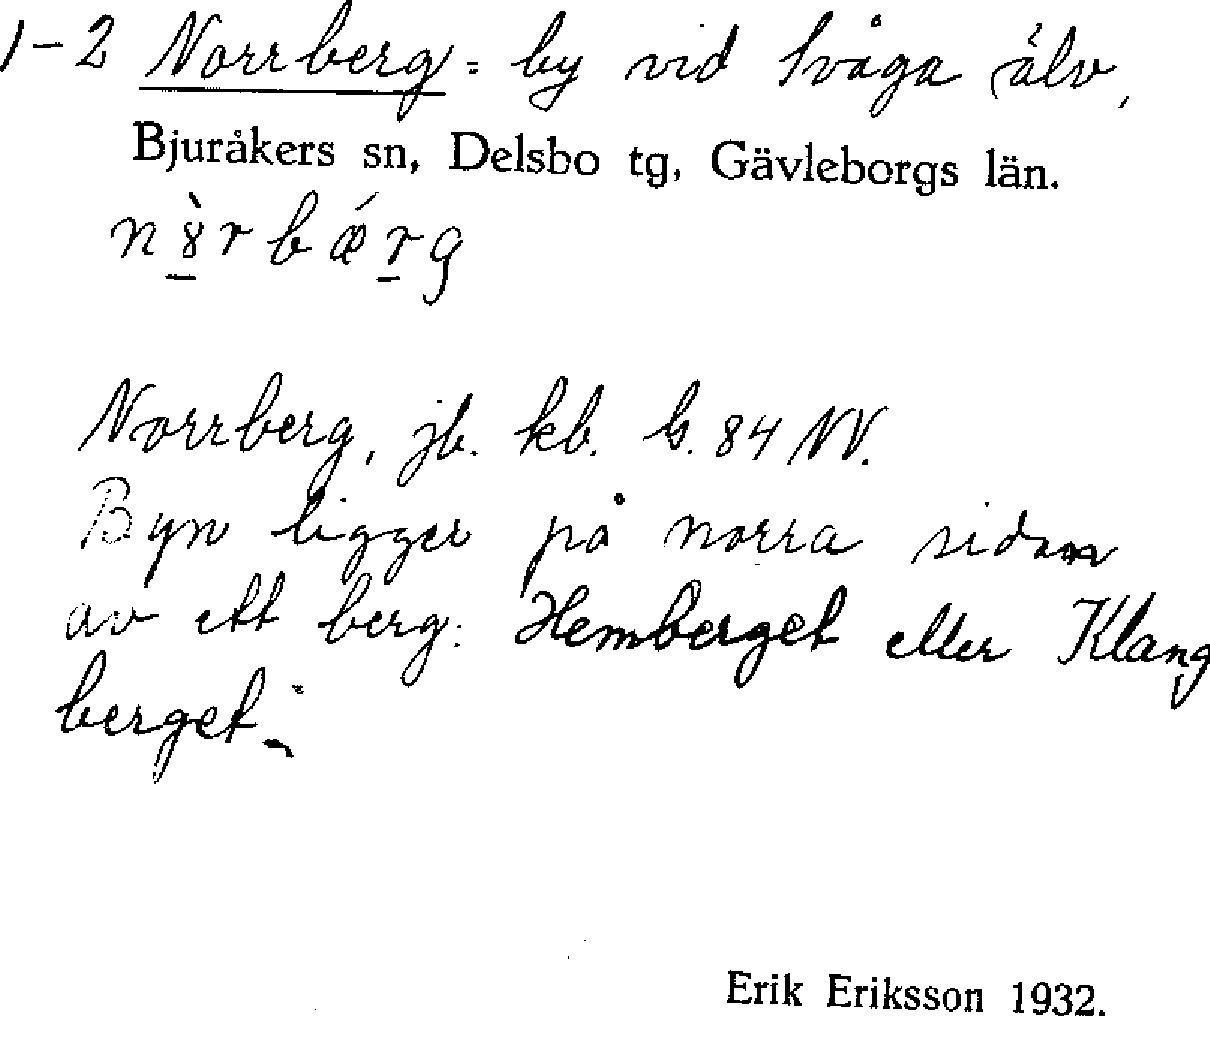 1-2 Norrberg = by vid Svåga älv,
Bjuråkers sn, Delsbo tg, Gävleborgs län.
Norrberg, jb. kb. G. 84 NV.
Byn ligger på norra sidan
av ett berg: Hemberget eller Klang
berget.
Erik Eriksson 1932.